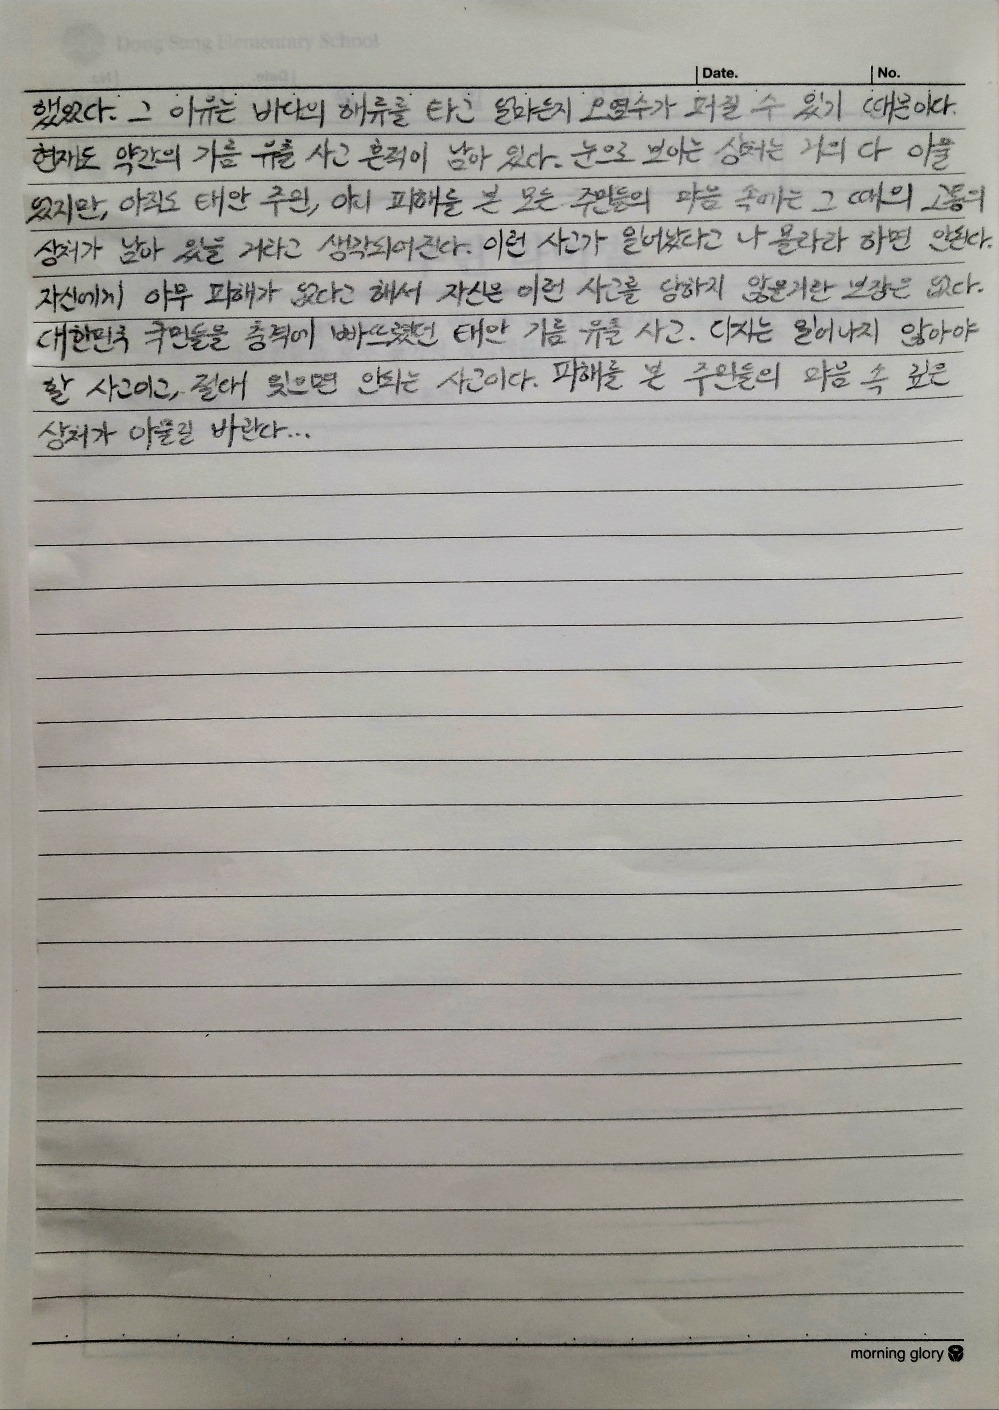 Dong Sung Elementary School
Date. No.
했었다. 그 이유는 바다의 해류를 타고 얼마든지 오염수가 퍼질 수 있기 때문이다.
현재도 약간의 기름 유출 사고 흔적이 남아 있다. 눈으로 보이는 상처는 거의 다 아물
었지만, 아직도 태안 주민, 아니 피해를 본 모든 주민들의 마음 속에는 그 때의 고통의
상처가 남아 있을 거라고 생각되어진다. 이런 사고가 일어났다고 나 몰라라 하면 안된다.
자신에게 아무 피해가 없다고 해서 자신은 이런 사고를 당하지 않을거란 보장은 없다.
대한민국 국민들을 충격에 빠뜨렸던 태안 기름 유출 사고. 다시는 일어나지 않아야
할 사고이고, 절대 잊으면 안되는 사고이다. 피해를 본 주민들의 마음 속 깊은
상처가 아물길 바란다...
morning glory